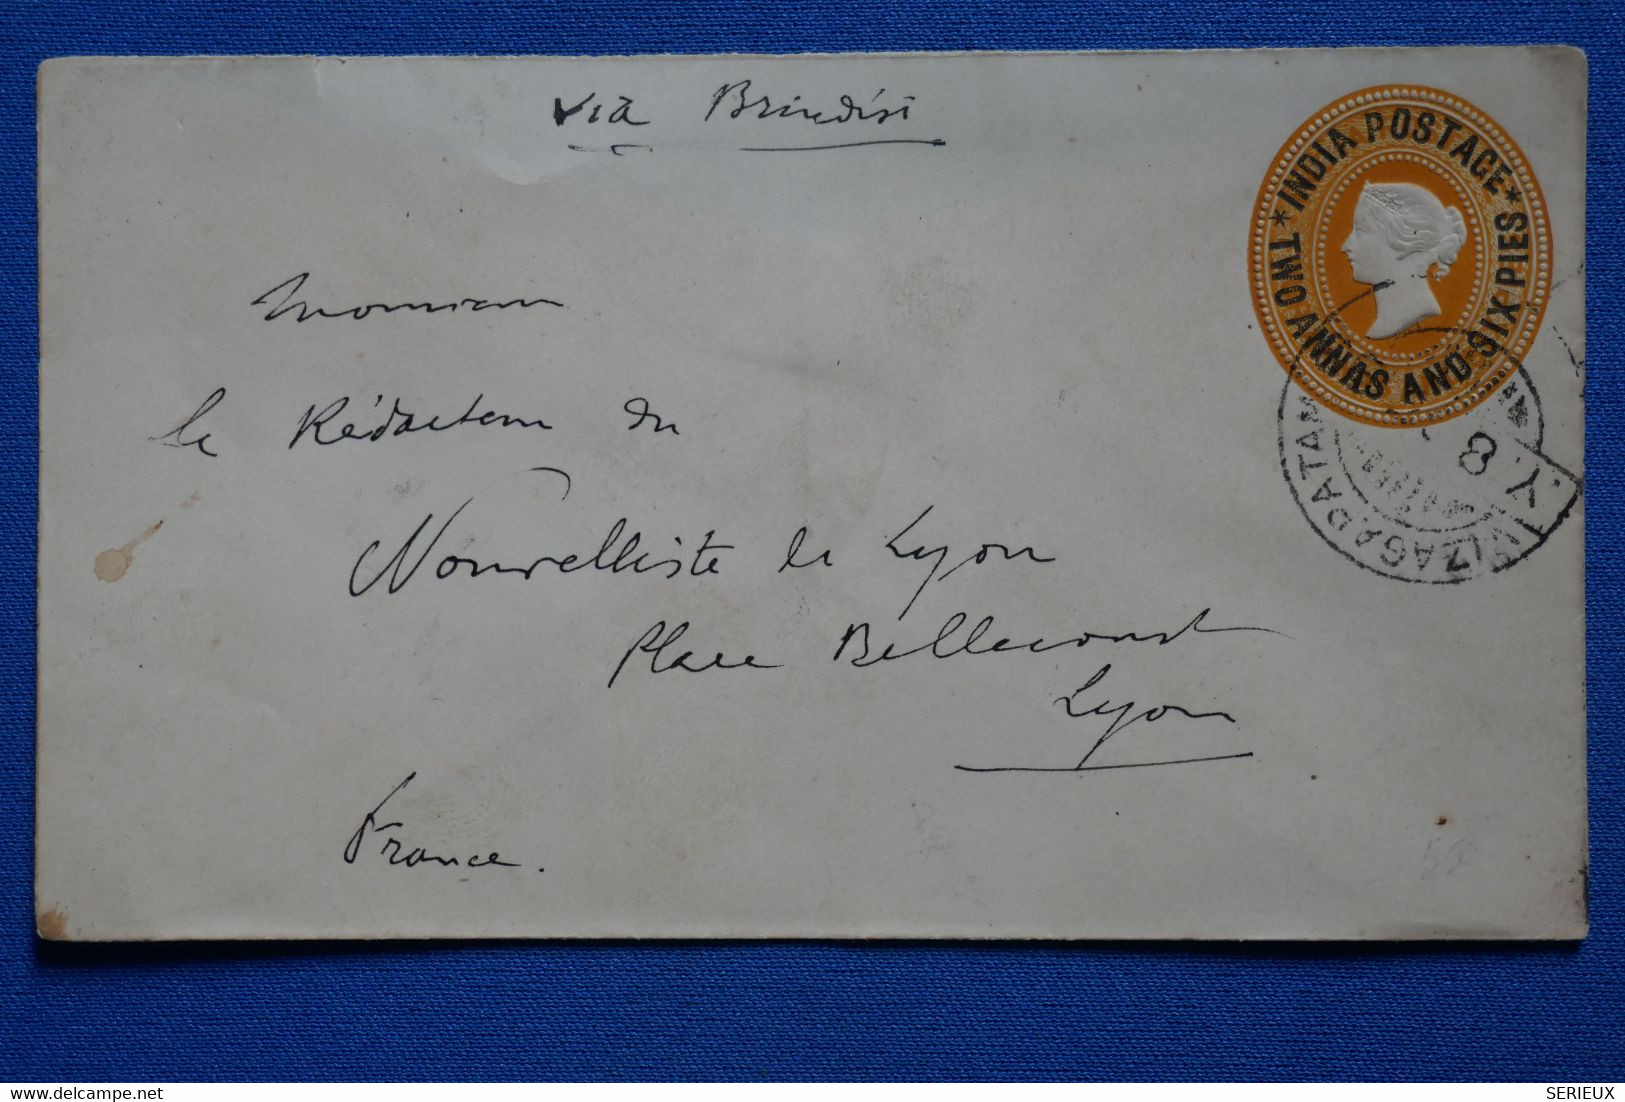 via Brindisi
* INDIA POSTAGE *
TWO ANNAS AND SIX PIES
Monsieur
le Rédacteur du
Nouvelliste de Lyon
Place Bellecourt
Lyon
France.
VIZAGAPATAM
8
www.delcampe.net
SERIEUX